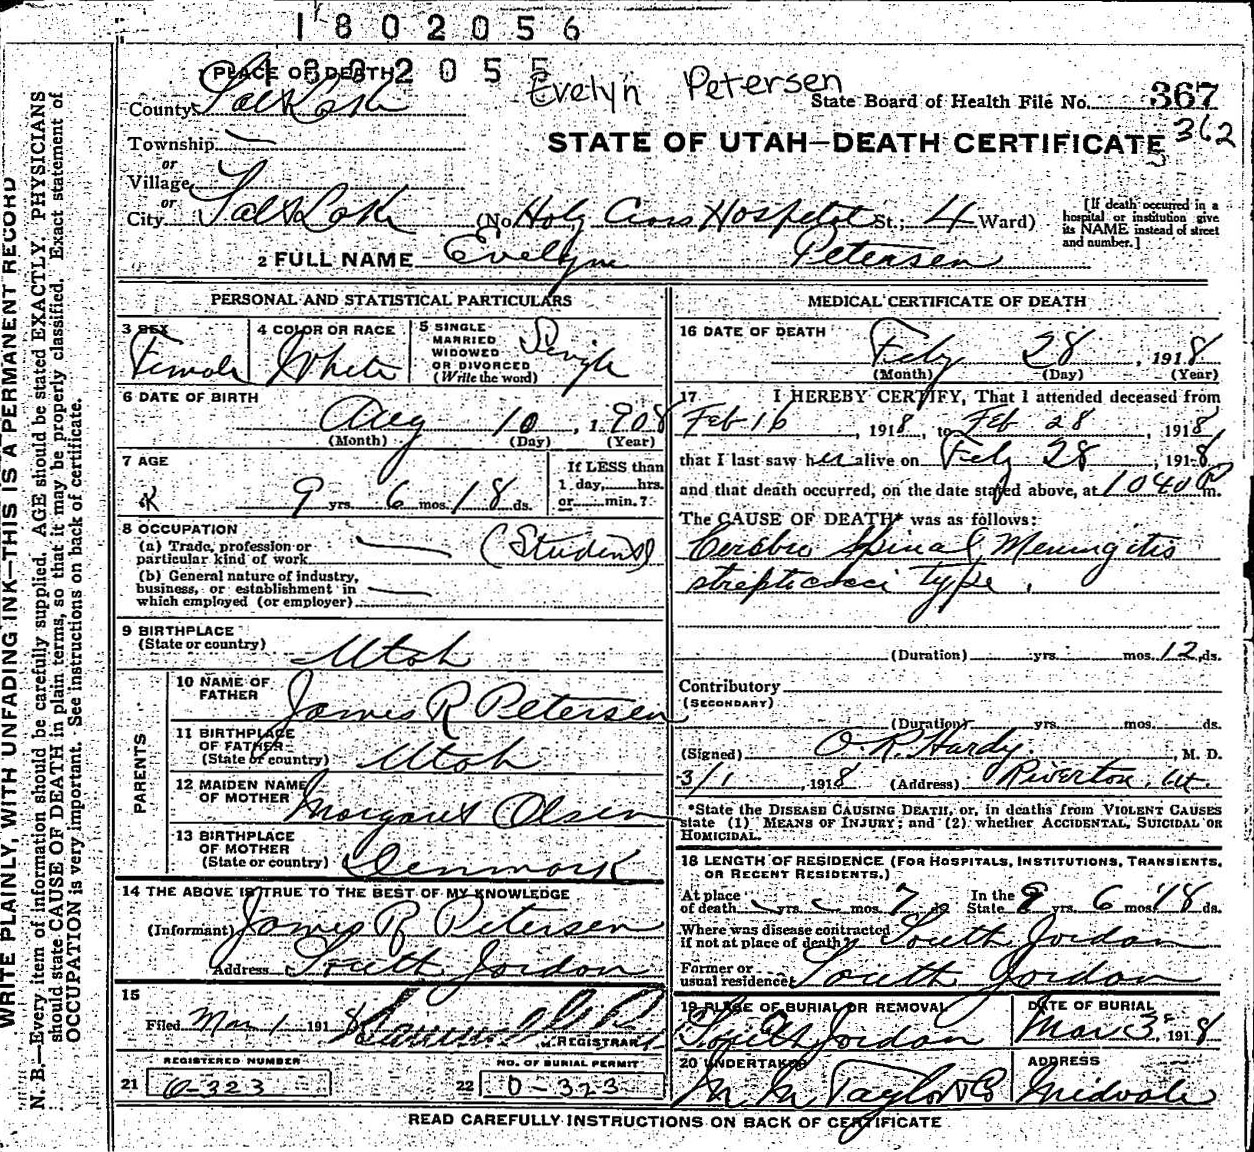 1802056
1802055
Evelyn Petersen
1 PLACE OF DEATH
County Salt Lake
State Board of Health File No. 367
362
Township —
STATE OF UTAH—DEATH CERTIFICATE
or
Village
or
City Salt Lake (No. Holy Cross Hospital St.; 4 Ward)
[If death occurred in a hospital or institution give its NAME instead of street and number.]
2 FULL NAME Evelyn Petersen
PERSONAL AND STATISTICAL PARTICULARS
3 SEX Female
4 COLOR OR RACE White
5 SINGLE MARRIED WIDOWED OR DIVORCED (Write the word) Single
6 DATE OF BIRTH
Aug 10, 1908
(Month) (Day) (Year)
7 AGE
9 yrs. 6 mos. 18 ds.
If LESS than 1 day, hrs. or min.?
8 OCCUPATION
(a) Trade, profession or particular kind of work — (Student)
(b) General nature of industry, business, or establishment in which employed (or employer) —
9 BIRTHPLACE
(State or country) Utah
PARENTS
10 NAME OF FATHER James R Petersen
11 BIRTHPLACE OF FATHER (State or country) Utah
12 MAIDEN NAME OF MOTHER Margaret Olsen
13 BIRTHPLACE OF MOTHER (State or country) Denmark
14 THE ABOVE IS TRUE TO THE BEST OF MY KNOWLEDGE
(Informant) James R Petersen
Address South Jordan
15
Filed Mar 1 1918
REGISTRAR
REGISTERED NUMBER
21 0-323
NO. OF BURIAL PERMIT
22 0-323
MEDICAL CERTIFICATE OF DEATH
16 DATE OF DEATH
Feby 28, 1918
(Month) (Day) (Year)
17 I HEREBY CERTIFY, That I attended deceased from
Feb 16, 1918, to Feb 28, 1918
that I last saw her alive on Feby 28, 1918
and that death occurred, on the date stated above, at 1040 P m.
The CAUSE OF DEATH* was as follows:
Cerebro Spinal Meningitis
strepticocci type.
(Duration) yrs. mos. 12 ds.
Contributory
(SECONDARY)
(Duration) yrs. mos. ds.
(Signed) O R Hardy, M. D.
3/1, 1918 (Address) Riverton, Ut.
*State the DISEASE CAUSING DEATH, or, in deaths from VIOLENT CAUSES
state (1) MEANS OF INJURY; and (2) whether ACCIDENTAL, SUICIDAL OR
HOMICIDAL.
18 LENGTH OF RESIDENCE (FOR HOSPITALS, INSTITUTIONS, TRANSIENTS,
OR RECENT RESIDENTS.)
At place of death yrs. mos. 7 ds. In the State 9 yrs. 6 mos. 18 ds.
Where was disease contracted if not at place of death? South Jordan
Former or usual residence South Jordan
19 PLACE OF BURIAL OR REMOVAL South Jordan
DATE OF BURIAL Mar 3, 1918
20 UNDERTAKER M. M. Taylor & Co
ADDRESS Midvale
READ CAREFULLY INSTRUCTIONS ON BACK OF CERTIFICATE
WRITE PLAINLY, WITH UNFADING INK—THIS IS A PERMANENT RECORD
N. B.—Every item of information should be carefully supplied. AGE should be stated EXACTLY. PHYSICIANS
should state CAUSE OF DEATH in plain terms, so that it may be properly classified. Exact statement of
OCCUPATION is very important. See instructions on back of certificate.